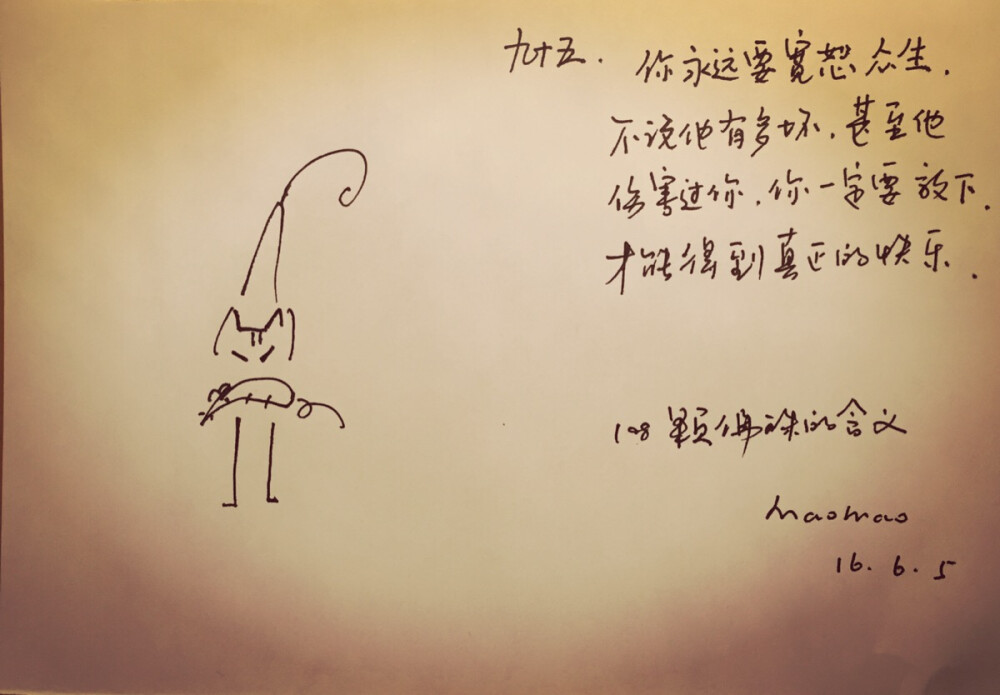 九十五. 你永远要宽恕众生,
不说他有多坏,甚至他
伤害过你,你一定要放下,
才能得到真正的快乐.
108颗佛珠的含义
maomao
16.6.5